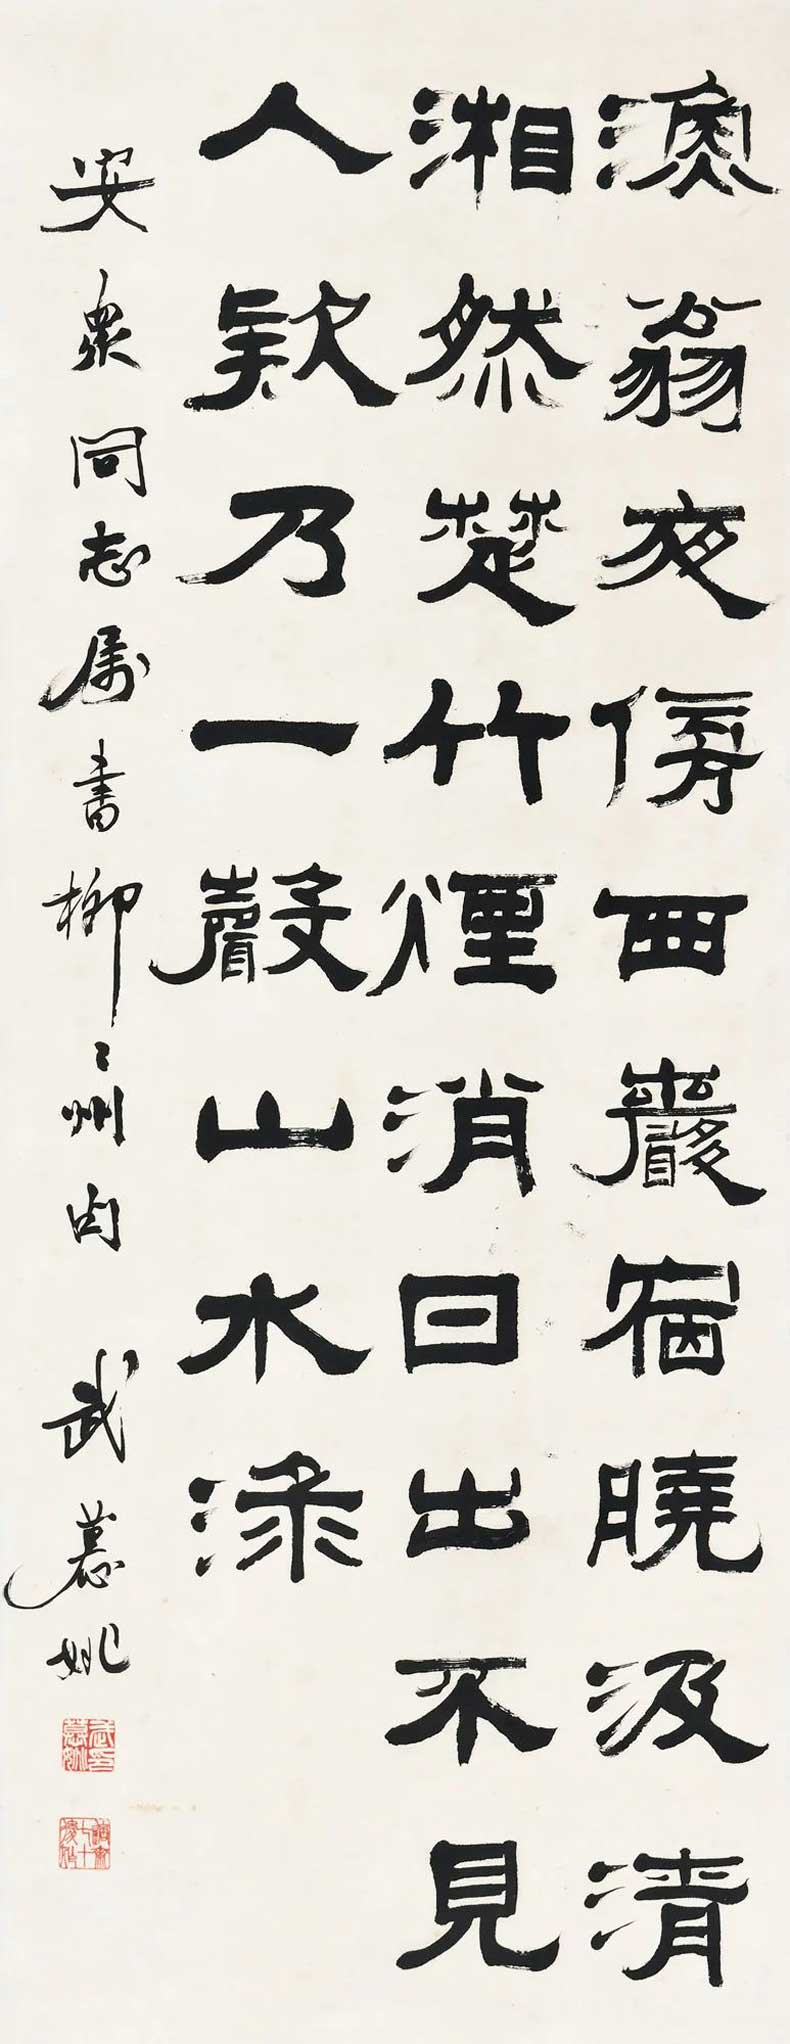 漁翁夜傍西巖宿曉汲清
湘然楚竹煙消日出不見
人欸乃一聲山水渌
安衆同志属书柳柳州句 武慕姚